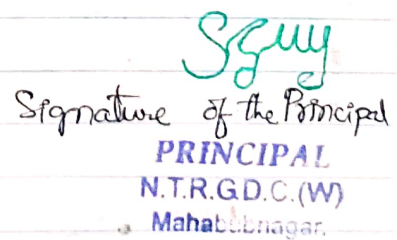 Signature of the Principal
PRINCIPAL
N.T.R.G.D.C.(W)
Mahabubnagar.